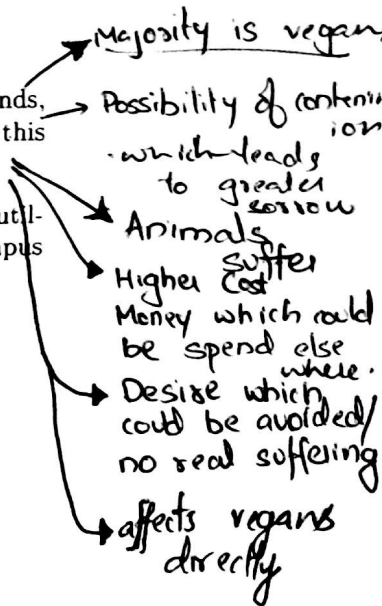 Majority is vegan
nds,
Possibility of
this
which leads
to greater
sorrow
util-
Animals
suffer
pus
Higher Cost
Money which could
be spend else
where.
Desire which
could be avoided/
no real suffering
affects vegans
directly